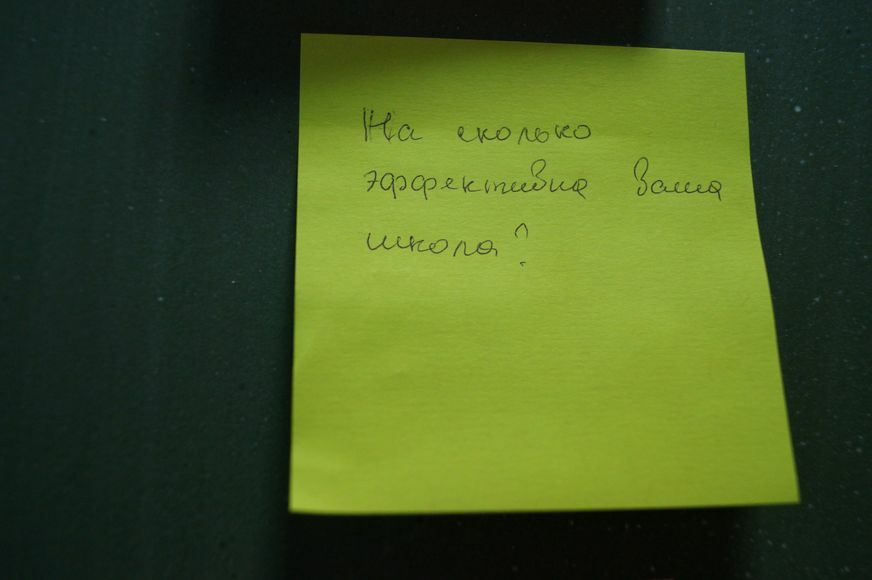 На сколько
эффективна Ваша
школа?